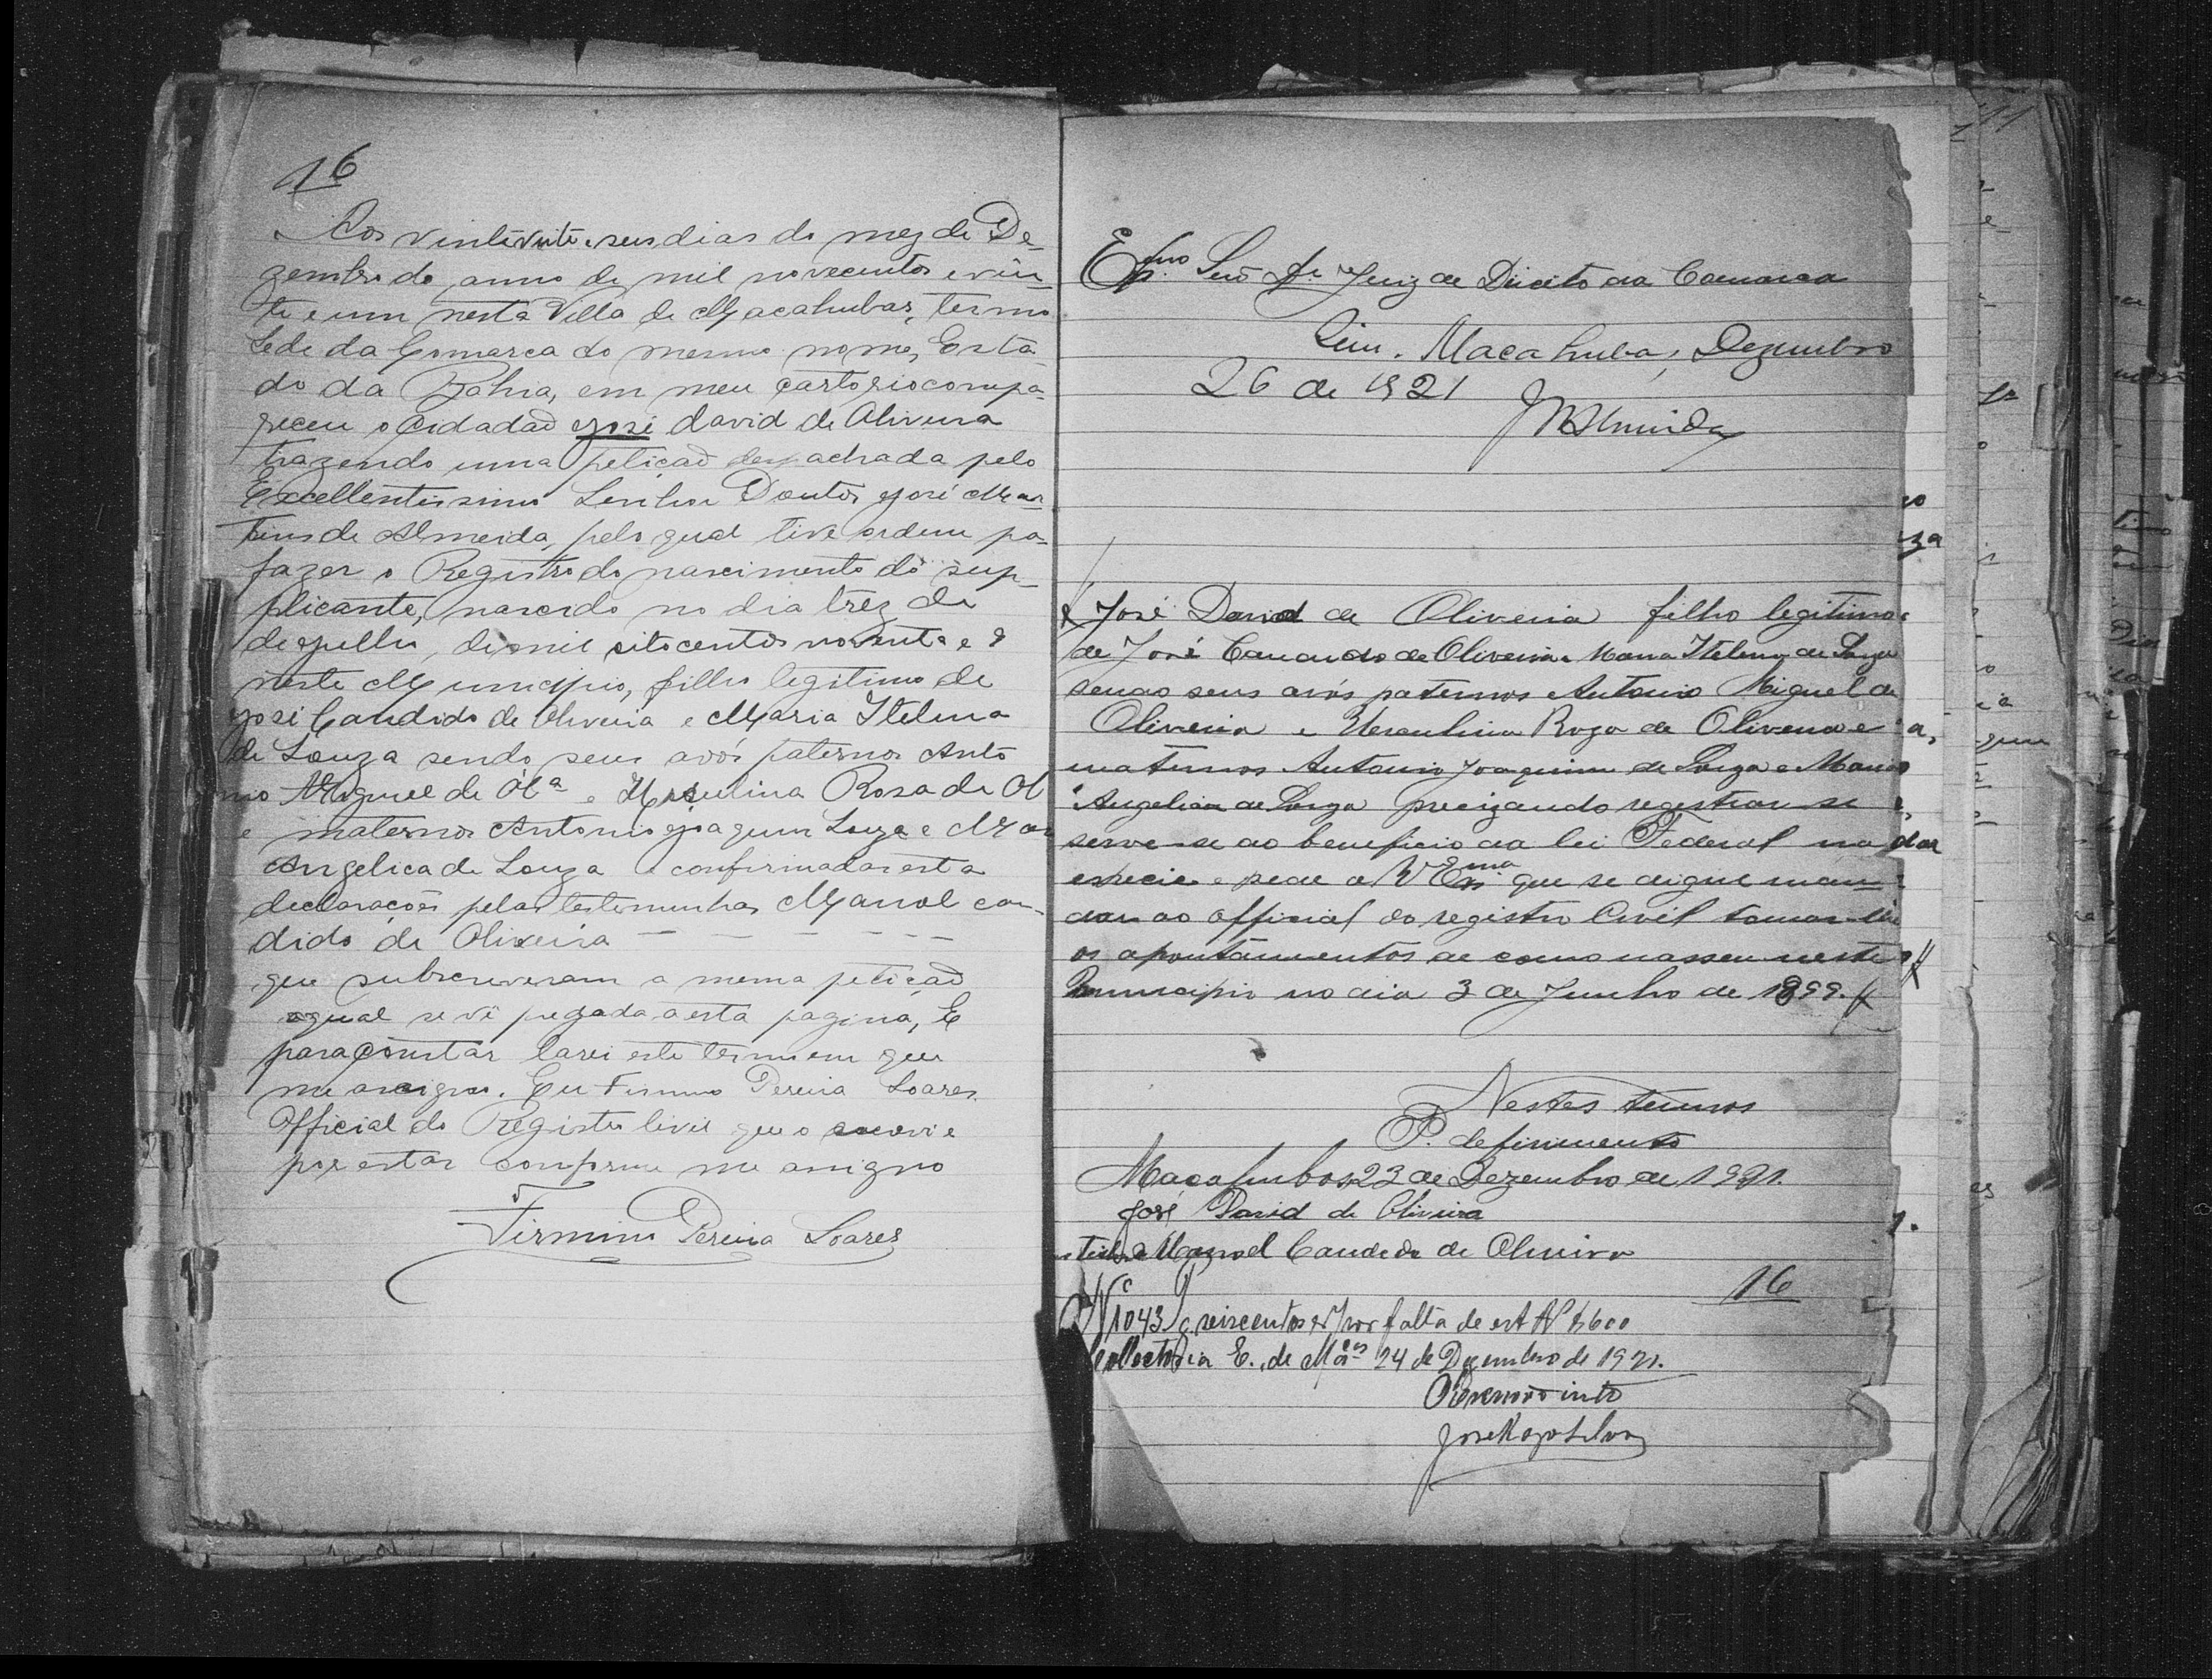 16
Aos vinte vinte e seis dias do mez de De-
zembro do anno de mil novecentos e vin-
te e um nesta Villa de Macahubas, termo
Sede da Comarca do mesmo nome, Esta-
do da Bahia, em meu cartorio compa-
receu o Cidadaõ José david de Oliveira
trazendo uma petiçaõ despachada pelo
Excellentissimo Senhor Doutor José Mar-
tins de Almeida, pelo qual tive ordem pa-
fazer o Registro do nascimento do sup-
plicante, nascido no dia trez de
de Julho, de mil oitocentos noventa e 9
neste Municipio, filho legitimo de
José Candido de Oliveira e Maria Itelina
de Souza sendo seus avós paternos Anto
nio Miguel de Olª e Rosa de Ol
e maternos Antonio Joaquim Souza e Mar
Angelica de Souza confirmadas esta
declaraçoẽs pelas testemunhas Manoel can-
dido de Oliveira - - - - - -
que subscreveram a mesma petiçaõ
aqual se vê pregada a esta pagina, E
para Constar lavrei este termo em que
me assigno. Eu Firmino Pereira Soares
Official do Registro Civil que o escrevi e
por estar conforme me assigno
Firmino Pereira Soares
Exmo. Senr. Dr. Juiz de Direito da Comarca
Sim. Macahubas, Dezembro
26 de 1921
JMAlmeida
José David de Oliveira filho legitimo
de José Candido de Oliveira e Maria Itelina de Souza
sendo seus avós paternos Antonio Miguel de
Oliveira e Herculina Roza de Oliveira e
maternos Antonio Joaquim de Souza e Maria
Angelica de Souza precizando registrar-se
serve-se do beneficio da lei Federal na
especie e pede a V Exma. que se digne man-
dar ao official do registro Civil tomar-lhe
os apontamentos de como nasceu neste
Municipio no dia 3 de Junho de 1899.
Nestes termos
P. deferimento
Macahubas 23 de Dezembro de 1921.
José David de Oliveira
Manoel Candido de Oliveira
16
Nº 1043 seiscentos rs por falta de est Nº $600
Collectoria E. de Mªcas 24 de Dezembro de 1921.